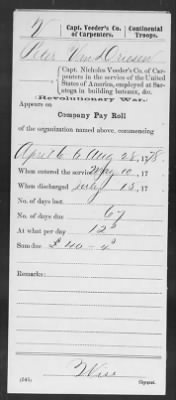 V
Capt. Veeder's Co.
of Carpenters.
Continental
Troops.
Peter Van Driesen
Capt. Nicholas Veeder's Co. of Car-
penters in the service of the United
States of America, employed at Sar-
atoga in building bateaux, &c.
Revolutionary War.
Appears on
Company Pay Roll
of the organization named above, commencing
April 6 to Aug 28, 1778.
When entered the service May 10, 17
When discharged July 15, 17
No. of days lost
No. of days due 67
At what per day 12s
Sum due £ 40 - 4s
Remarks:
Wise
(545) Copyist.